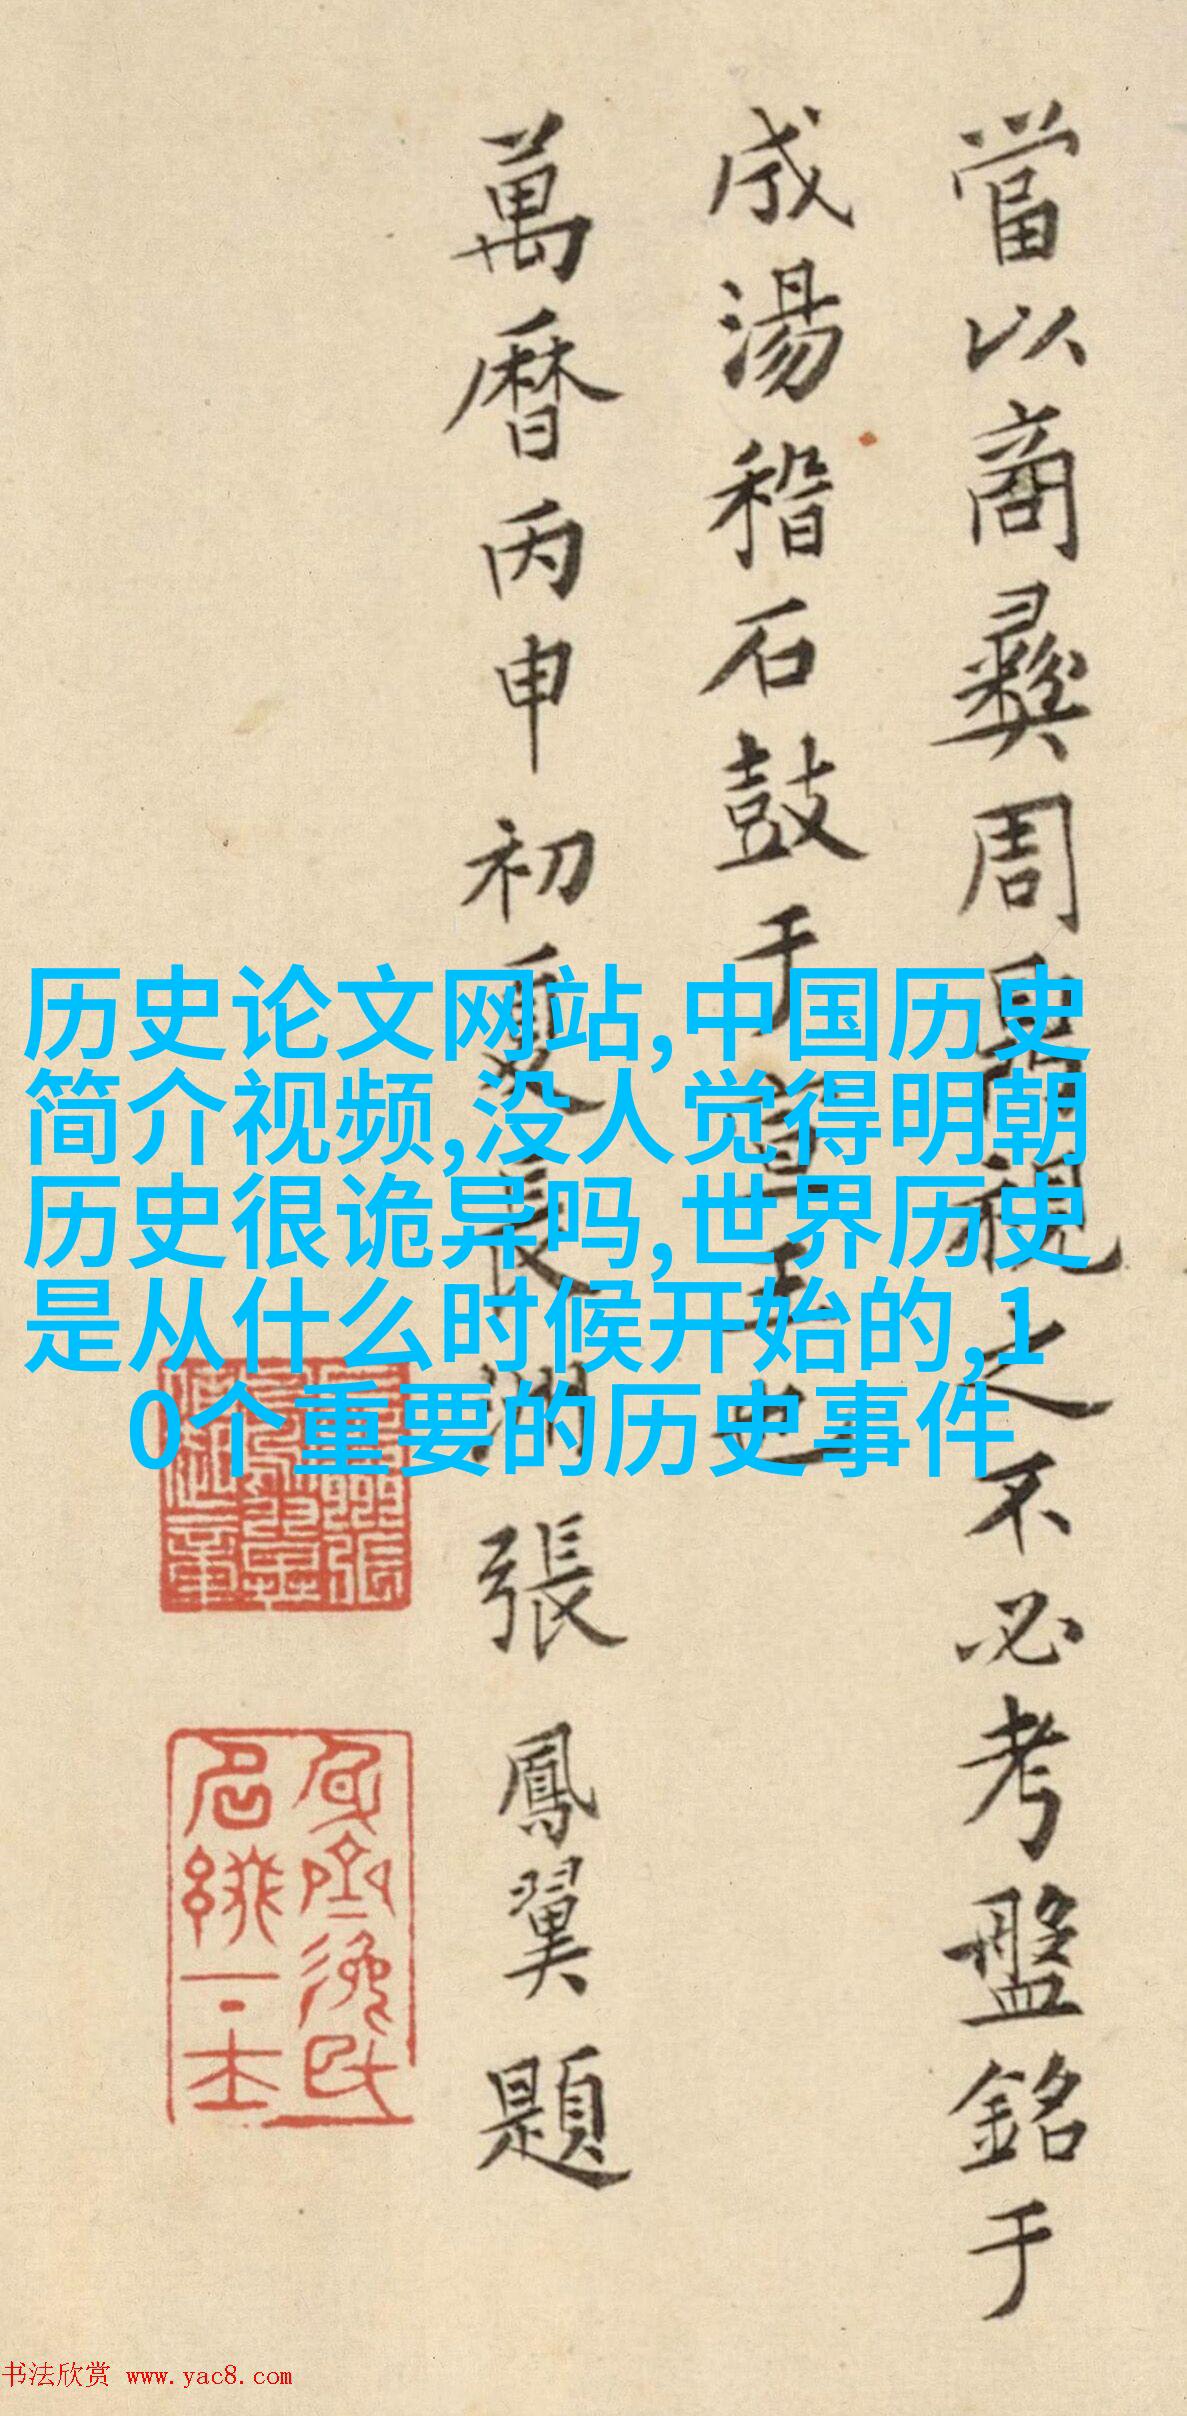 當以商彝周鼎視之不必考盤銘于
成湯稽石鼓于宣王也
萬曆丙申初夏長洲張鳳翼題
历史论文网站,中国历史
简介视频,没人觉得明朝
历史很诡异吗,世界历史
是从什么时候开始的,1
0个重要的历史事件
书法欣赏 www.yac8.com